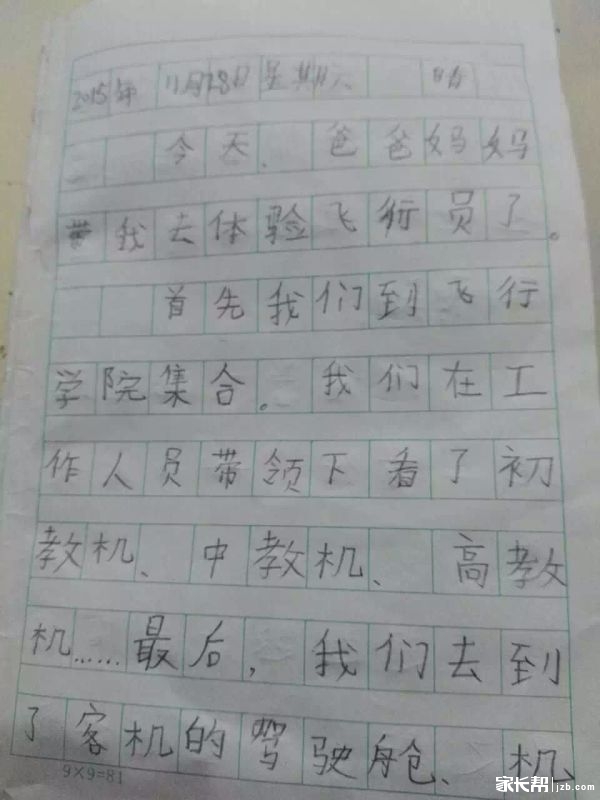 2015年 11月28日 星期六 晴
今天、爸爸妈妈
带我去体验飞行员了。
首先我们到飞行
学院集合。我们在工
作人员带领下看了初
教机、中教机、高教
机……最后，我们去到
了客机的驾驶舱、机
9×9=81
家长帮 jzb.com